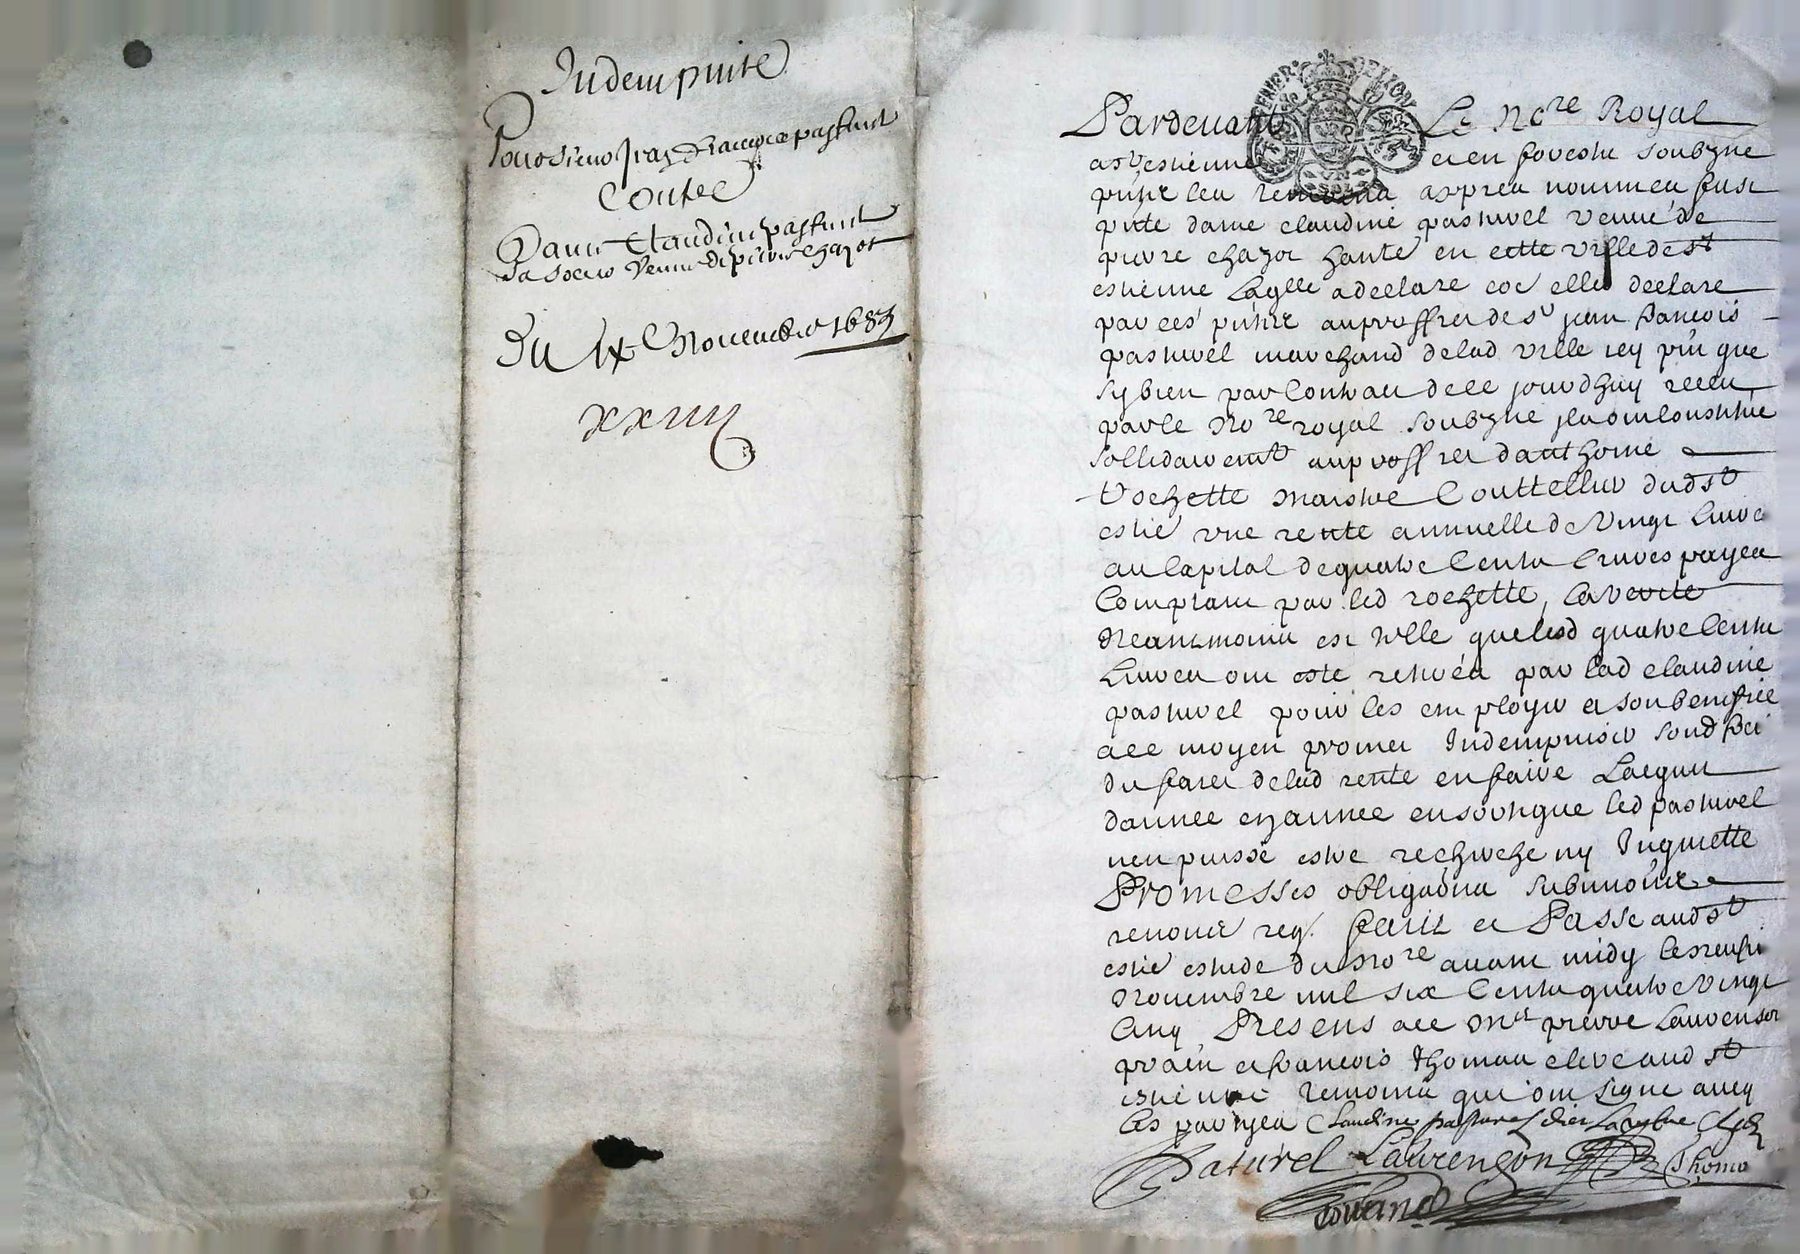 Indempnite
Pour sieur Jean Francois pasturel
Contre
Dame Claudine pasturel
Sa soeur Veuve de pierre chazot
Du IX Novembre 1685
xxiiii
FERMIER DE LION
VN SOL
Pardevant Le No.re Royal
a St estienne et en forestz soubzne
pntz les tesmoins appres nommes fust
pnte dame claudine pasturel veuve de
pierre chazot hante en cette ville de St
estienne Laqlle a declare et elle declare
par ces pntes au proffit de Sr jean francois
pasturel marchand de lad ville icy pnt que
sy bien par contract de ce jourdhuy receu
par le No.re royal soubzne jls ont constitué
sollidairemt au proffit danthoine
rochette maistre Couttellier dud St
estie vne rente annuelle de Vingt Livres
au Capital de quatre Cents Livres payes
Comptant par led rochette, la verite
neantmoins est telle que lesd quatre Cents
Livres ont este retirés par lad claudine
pasturel pour les employer a son benefice
a ce moyen promet Indempniser sond frere
du fait de lad rente en faire Lacquit
dannee en annee en sorte que led pasturel
nen puisse estre recherche ny Inquiette
Promesses obligaons submons
renons req. faict et Passe aud St
estie estude du No.re avant midy le neufie
Novembre mil six Cents quatre Vingt
Cinq Presens a ce Me pierre Laurenson
prain et francois Thomas clerc aud St
estienne temoins qui ont signe avec
les parties Claudine pasturel
Paturel Laurençon Thomas